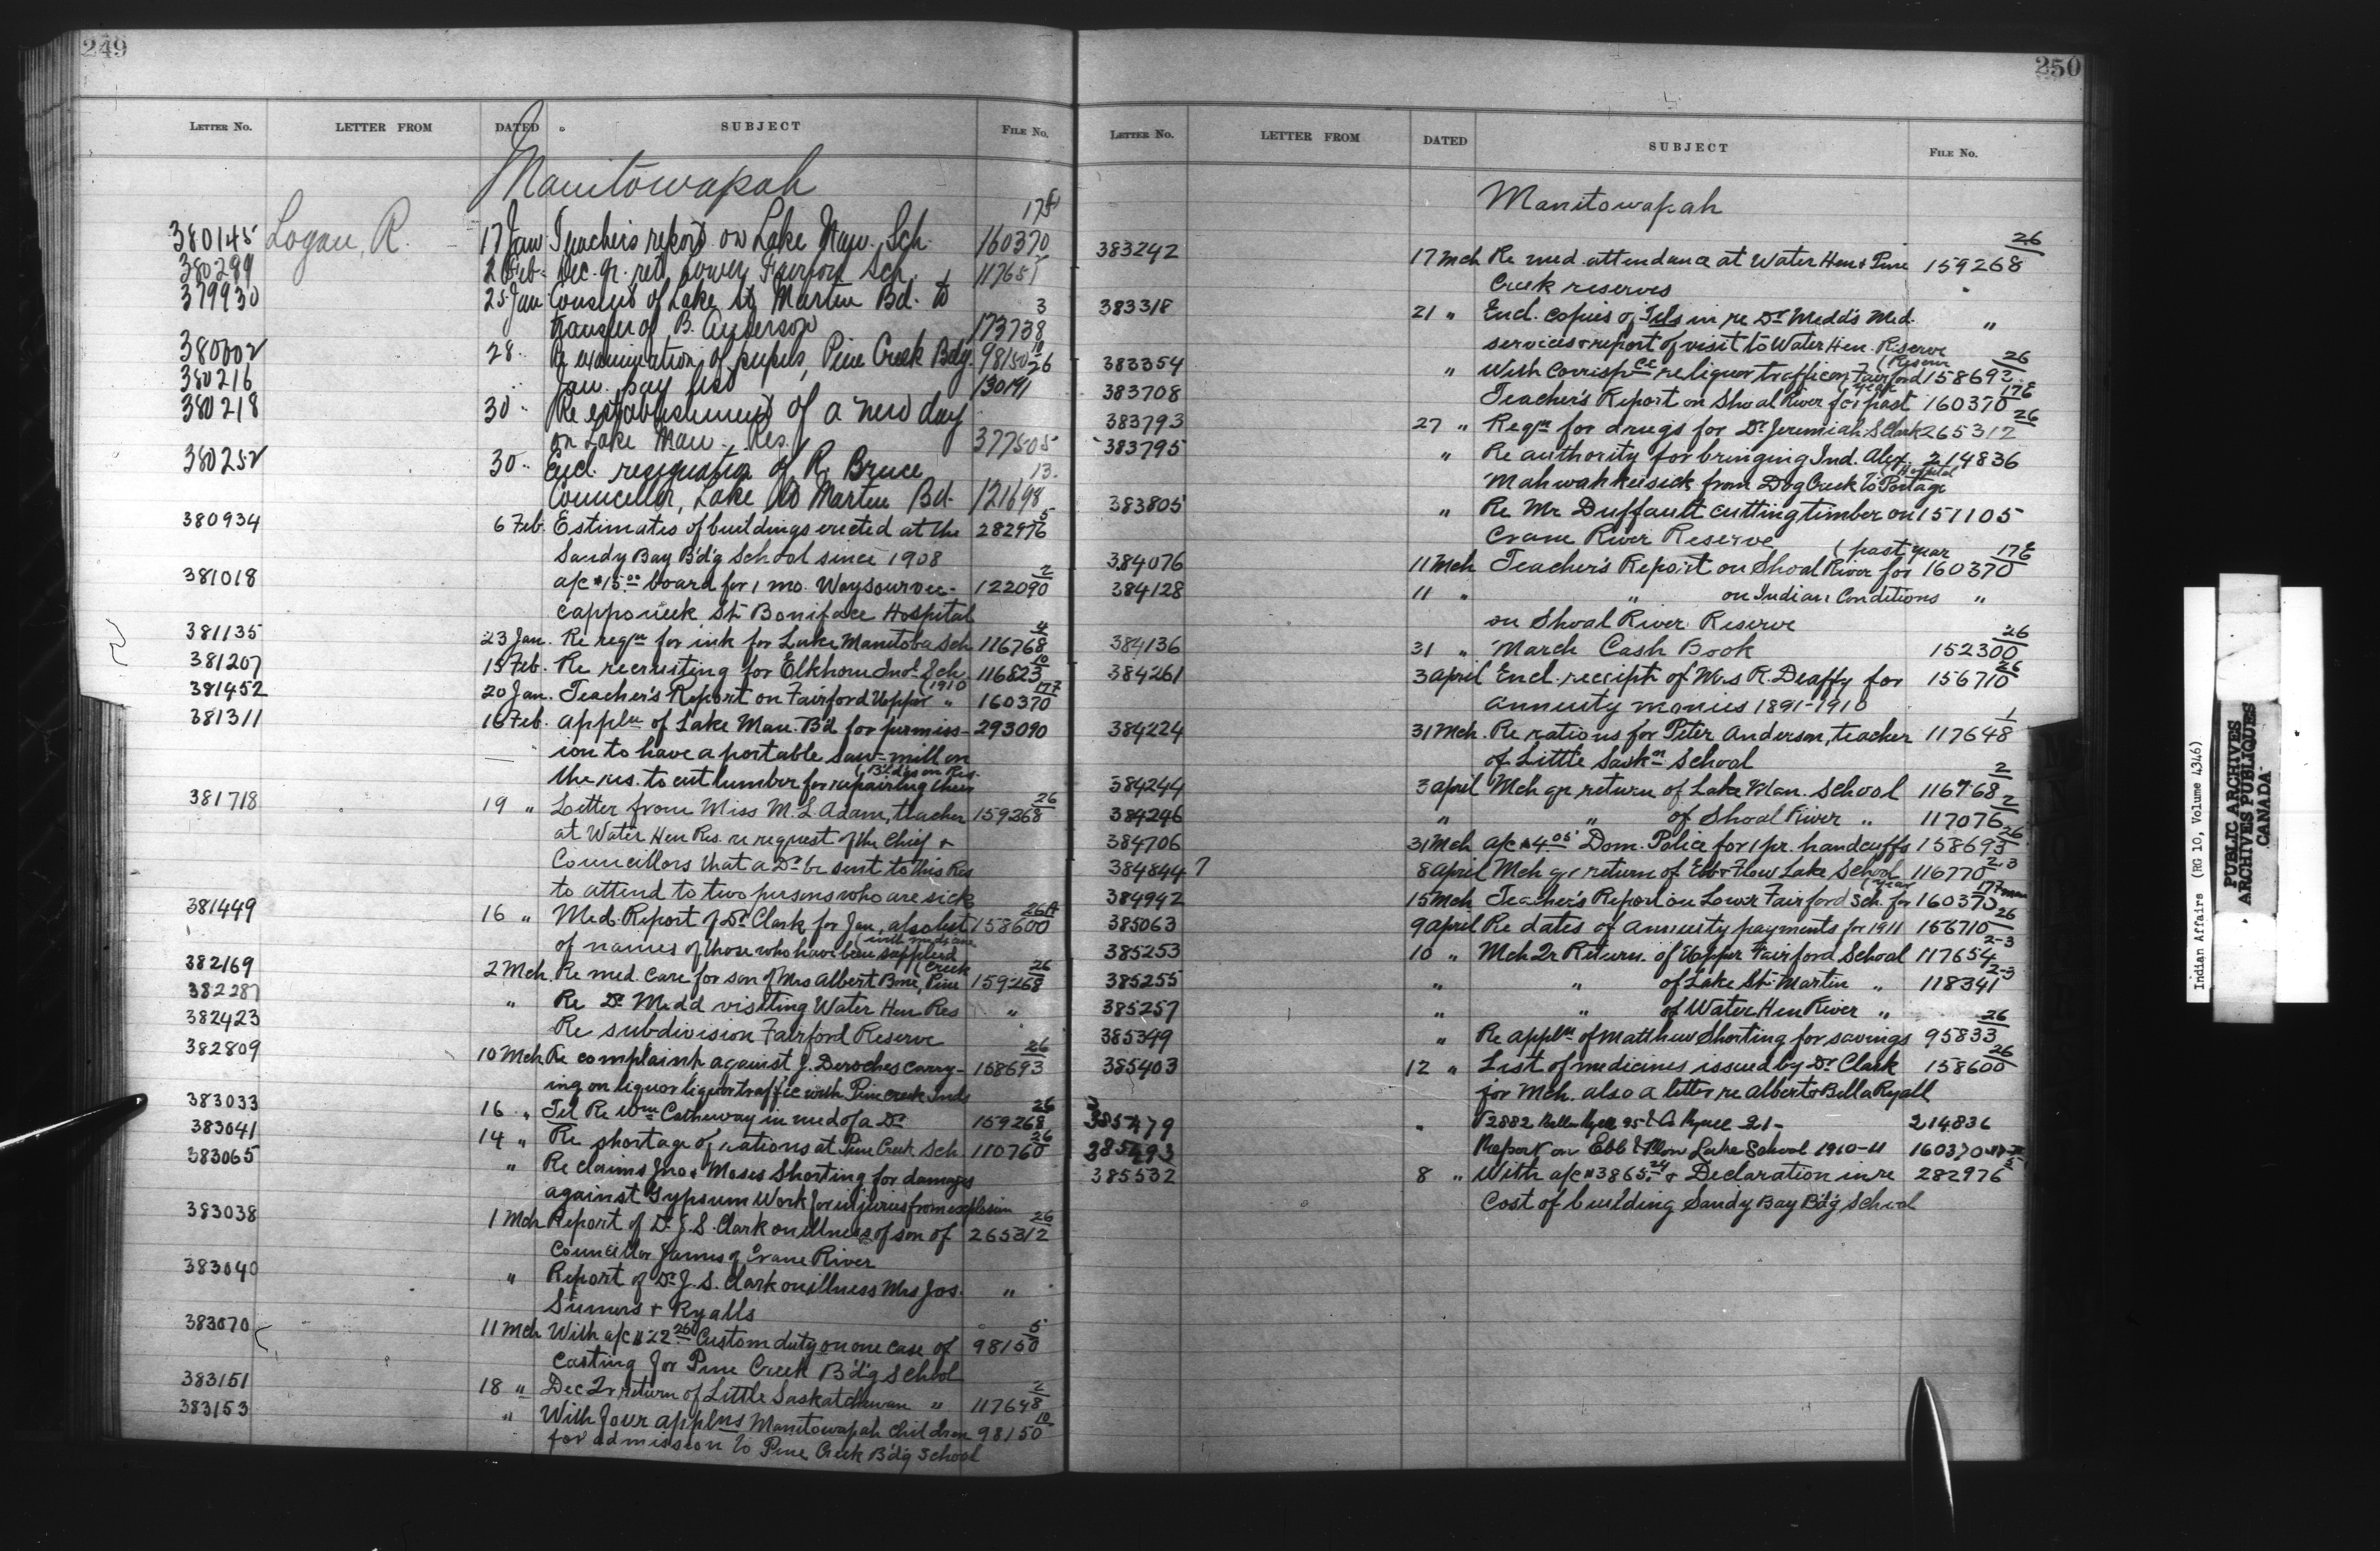 249
LETTER NO. LETTER FROM DATED SUBJECT FILE NO.
Manitowapah
380145 Logan, R. 17 Jan Teachers report on Lake Man. Sch. 160370
380299 2 Feb. Dec. qr. ret. Lower Fairford Sch. 117651
379930 25 Jan Consent of Lake St Martin Bd. to 3
transfer of B. Anderson 173738
380002 28 " Re examination of pupils, Pine Creek Bdg. 98150 10/26
380216 " Jan. pay list 130191
380218 30 " Re establishment of a new day
on Lake Man. Res. 377505
380252 30 " Encl. resignation of R. Bruce 13
Councillor, Lake St Martin Bd. 121698
380934 6 Feb. Estimates of buildings erected at the 282976 5
Sandy Bay B'd'g School since 1908
381018 a/c $15.00 board for 1 mo. Waysourvee- 122090 2
cappo week St. Boniface Hospital
381135 23 Jan. Re reqn for ink for Lake Manitoba Sch 116768 4
381207 15 Feb. Re recruiting for Elkhorn Ind. Sch. 116823 10
381452 20 Jan. Teacher's Report on Fairford Upper " (1910 160370
381311 16 Feb. appln of Lake Man. B'd for permiss- 293090
ion to have a portable saw-mill on
the res. to cut lumber for repairing their (B'ld'gs on Res.
381718 19 " Letter from Miss M. L. Adam, teacher 159268 26
at Water Hen Res. re request of the Chief &
Councillors that a Dr be sent to this Res
to attend to two persons who are sick
381449 16 " Med. Report of Dr Clark for Jan, also list 158600 26A
of names of those who have been supplied (with medicine
382169 2 Mch. Re med. care for son of Mrs Albert Bone, Pine (Creek 159268 26
382287 " Re Dr Medd visiting Water Hen Res "
382423 Re subdivision Fairford Reserve
382809 10 Mch Re complaint against J. Deroches carry- 158693 26
ing on liquor liquor traffic with Pine creek Inds
383033 16 " Tel Re Wm Catheway in need of a Dr 159268 26
383041 14 " Re shortage of rations at Pine Creek Sch. 110760 26
383065 " Re claims Jno & Moses Shorting for damages
against Gypsum Work for injuries from explosion
383038 1 Mch Report of Dr. J. S. Clark on illness of son of 265312 26
Councillor James of Crane River
383040 " Report of Dr J. S. Clark on illness Mrs Jos. "
Sumers & Ryalls
383070 11 Mch With a/c $22.26 Custom duty on one case of 98150 5
casting for Pine Creek B'd'g School
383151 18 " Dec Qr return of Little Saskatchewan " 117648 2
383153 " With four applns Manitowapah children 98150 10
for admission to Pine Creek B'd'g School
250
LETTER NO. LETTER FROM DATED SUBJECT FILE NO.
Manitowapah
383242 17 Mch Re med. attendance at Water Hen & Pine 159268 26
Creek reserves
383318 21 " Encl. copies of Tels in re Dr Medd's Med. "
services & report of visit to Water Hen Reserve
383354 " With corrispce re liquor traffic on Fairford (Reserve 158692 26
383708 Teacher's Report on Shoal River for past (year 160370 17E
383793 27 " Reqn for drugs for Dr Jeremiah S Clark 265312 26
383795 " Re authority for bringing Ind. Alex. 214836
Mahwahkeesick from Dog Creek to Portage (Hospital
383805 " Re Mr Duffault cutting timber on 151105
Crane River Reserve
384076 11 Mch Teacher's Report on Shoal River for (past year 160370 17E
384128 11 " " on Indian Conditions "
on Shoal River Reserve
384136 31 " March Cash Book 152300 26
384261 3 April Encl. receipt of Mrs R. Deaffy for 156710 26
annuity monies 1891-1910
384224 31 Mch. Re rations for Peter Anderson, teacher 117648 1
of Little Saskn School
384244 3 April Mch qr return of Lake Man. School 116768 2
384246 " " of Shoal River " 117076 2
384706 31 Mch a/c $4.05 Dom. Police for 1 pr. handcuffs 158693 26
384844 7 8 April Mch qr return of Ebb & Flow Lake School 116770 2-3
384942 15 Mch Teacher's Report on Lower Fairford Sch. for (year 160370
385063 9 April Re dates of Annuity payments for 1911 156710 26
385253 10 " Mch Qr Return of Upper Fairford School 117654 2-3
385255 " " of Lake St. Martin " 118341 2-3
385257 " " of Water Hen River "
385349 " Re appln of Matthew Shorting for savings 95833 26
385403 12 " List of medicines issued by Dr Clark 158600 26
for Mch. also a letter re Albert & Bella Ryall
385479 " V2882 Bella Ryall 95 & A Ryall 21- 214836
385493 Report on Ebb & Flow Lake School 1910-11 160370
385532 8 " With a/c $3865.24 & Declaration in re 282976 5
Cost of building Sandy Bay B'd'g School
Indian Affairs (RG 10, Volume 4346)
PUBLIC ARCHIVES
ARCHIVES PUBLIQUES
CANADA